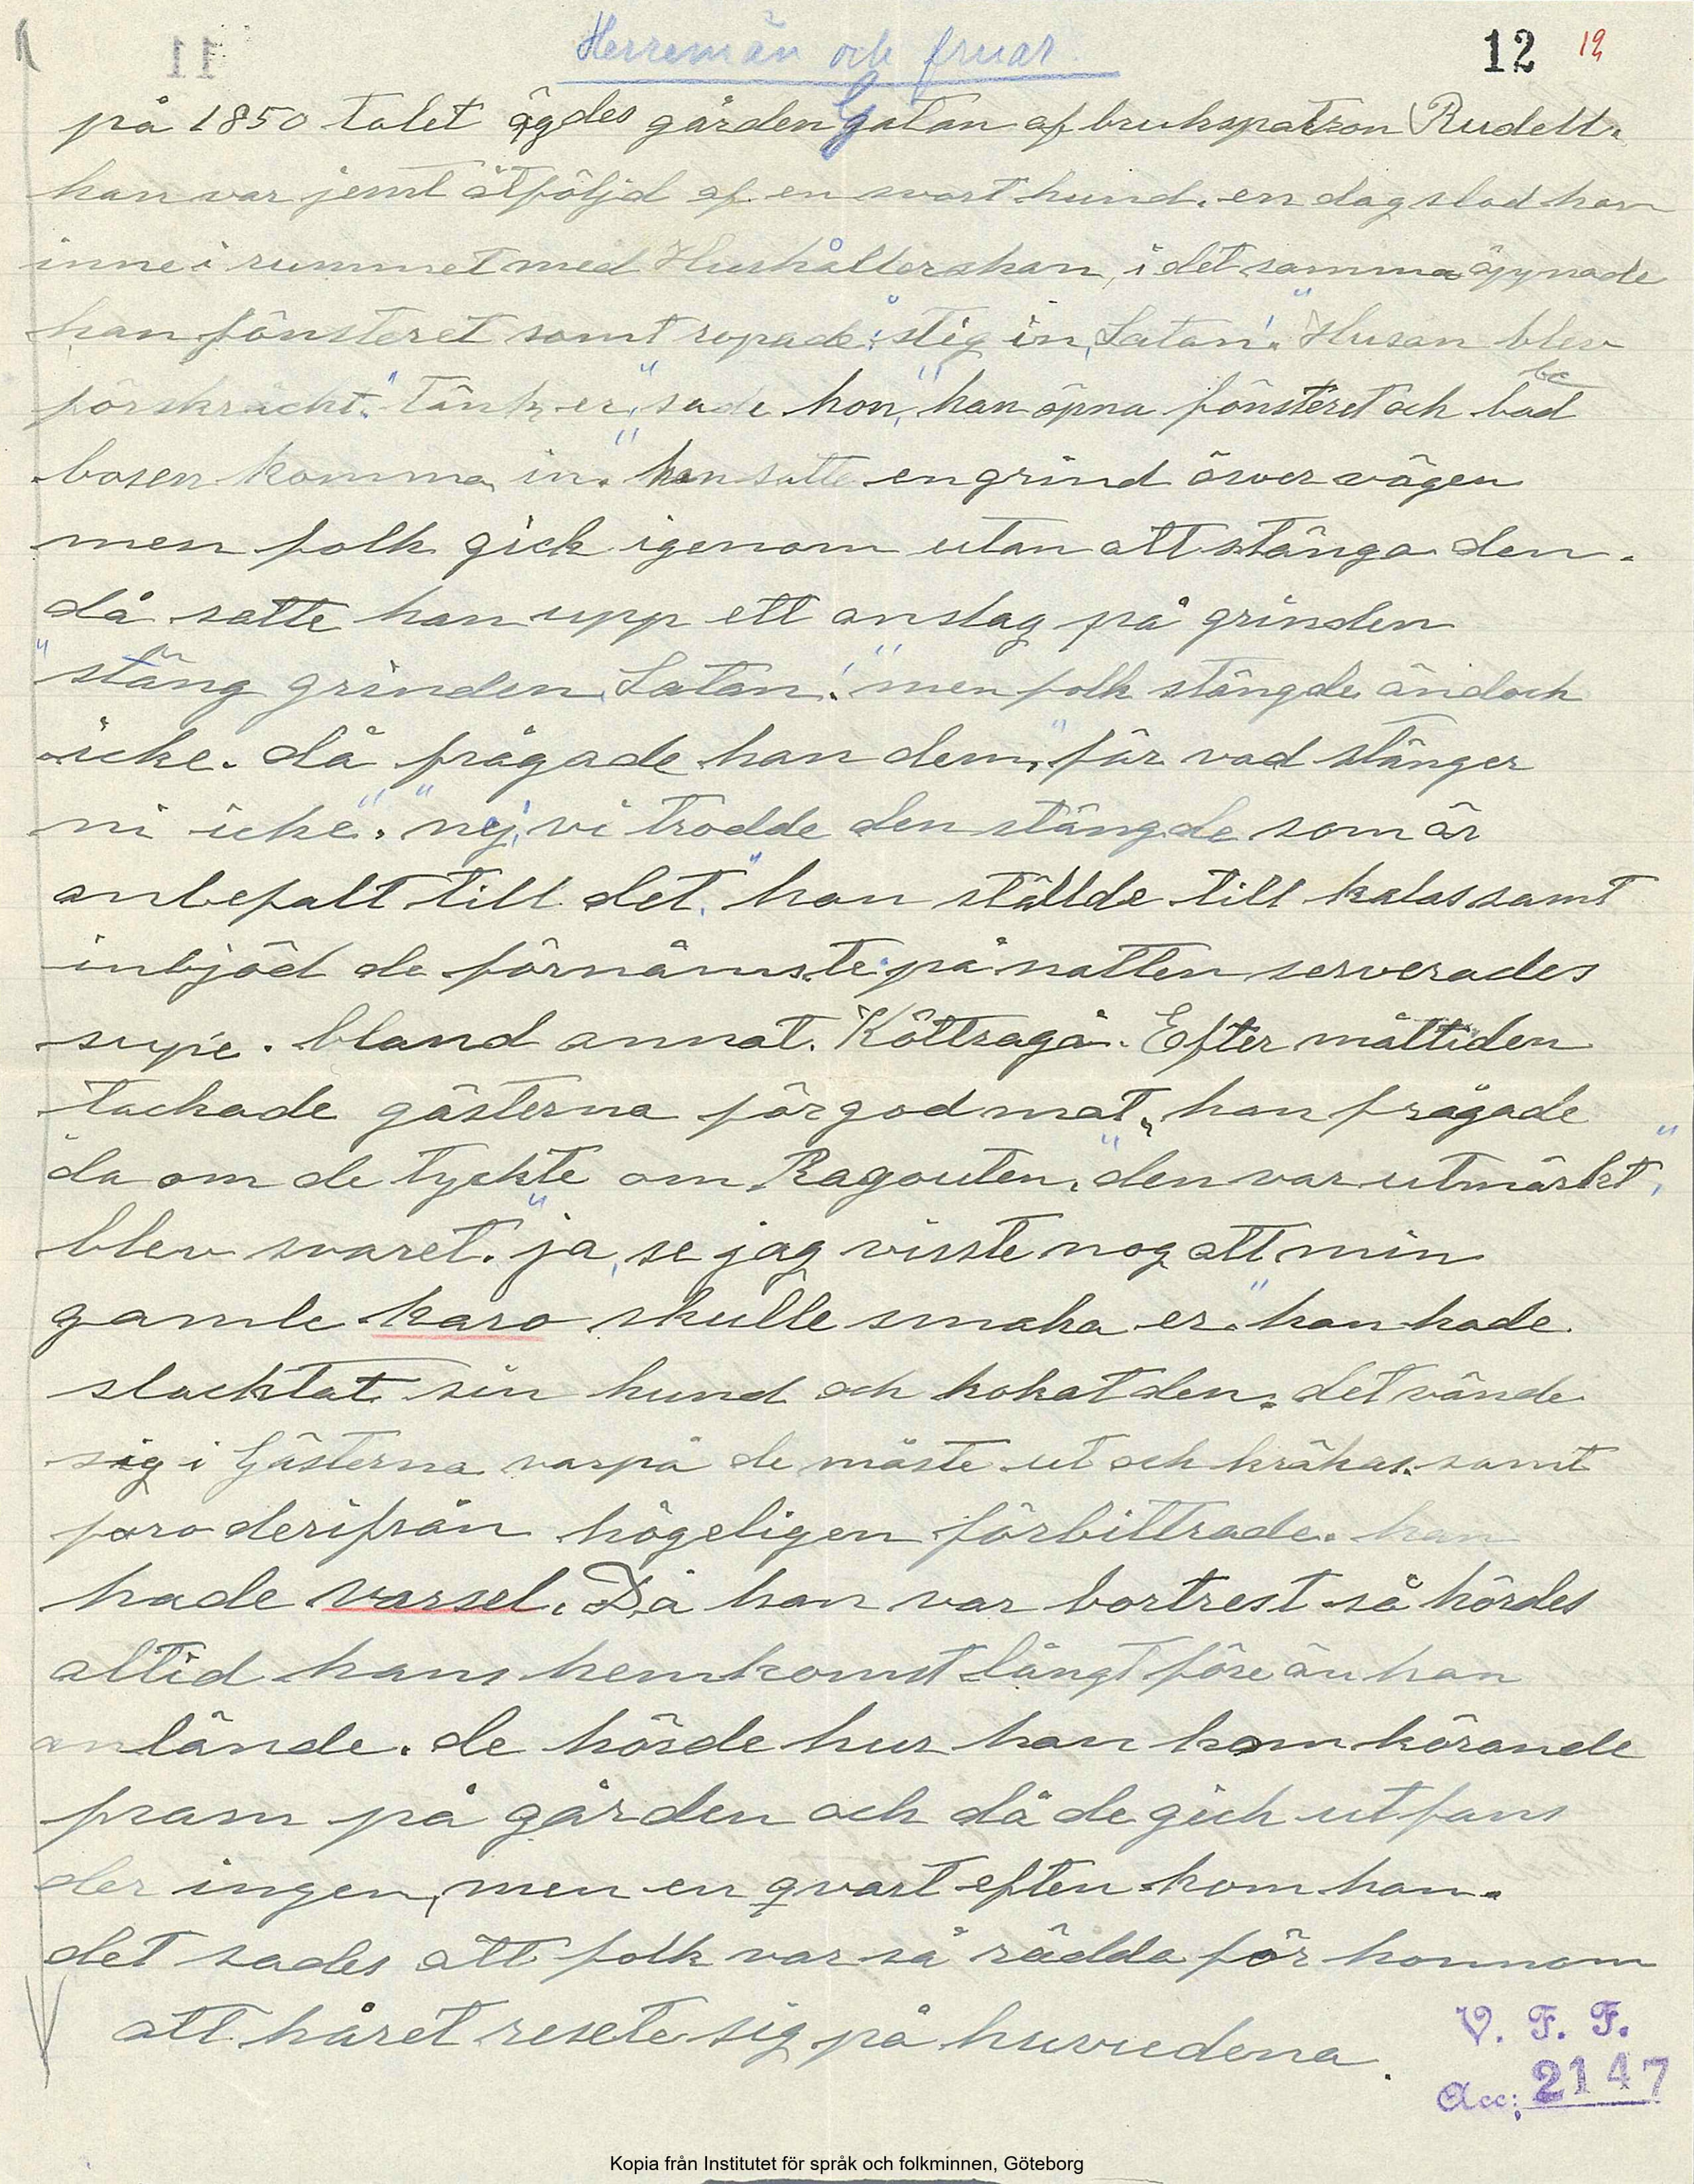 Herremän och fruar.
12 12
på 1850 talet ägdes gården Gatan af brukspatron Rudell.
han var jemt åtföljd af en svart hund. en dag stod han
inne i rummet med Hushållerskan, i det samma öppnade
han fönsteret samt ropade: "stig in, Satan!" Husan blev
förskräckt. "Tänk er," sade hon, "han öpna fönsteret och bad
bosen komma in." han satte en grind över vägen
men folk gick igenom utan att stänga den.
då satte han upp ett anslag på grinden
"stäng grinden, Satan!" men folk stängde ändock
icke. då frågade han dem, "för vad stänger
ni icke". "nej, vi trodde den stängde som är
anbefalt till det." han ställde till kalas samt
inbjöd de förnämste. på natten serverades
supé. bland annat. Köttragå. Efter måltiden
tackade gästerna för god mat, han frågade
da om de tyckte om Ragouten. "den var utmärkt",
blev svaret. "ja, se jag visste nog att min
gamle karo skulle smaka er." han hade
slacktat sin hund och kokat den. det vände
sig i Gästerna varpå de måste ut och kräkas. samt
foro derifrån högeligen förbittrade. han
hade varsel. Då han var bortrest så hördes
altid hans hemkomst långt före än han
anlände. de hörde hur han kom körande
fram på gården och då de gick ut fans
der ingen, men en qvart eften kom han.
det sades att folk var så rädda för honnom
att håret resete sig på huvudena.
V. F. F.
Acc: 2147
Kopia från Institutet för språk och folkminnen, Göteborg